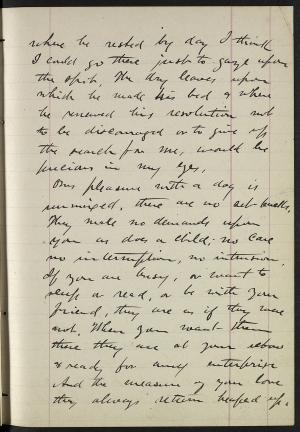 where he rested by day I think
I could go there just to gaze upon
the spot, The dry leaves upon
which he made his bed & where
he renewed his resolution not
to be discouraged or to give up
the search for me, would be
precious in my eyes,
Ones pleasure with a dog is
unmixed, there are no set-backs,
They make no demands upon
you as does a child; no care
no interruption, no intrusion,
If you are busy, or want to
sleep or read, or be with your
friend, they are as if they were
not, When you want them
there they are at your elbow
& ready for any enterprise
And the measure of your love
they always return heaped up.